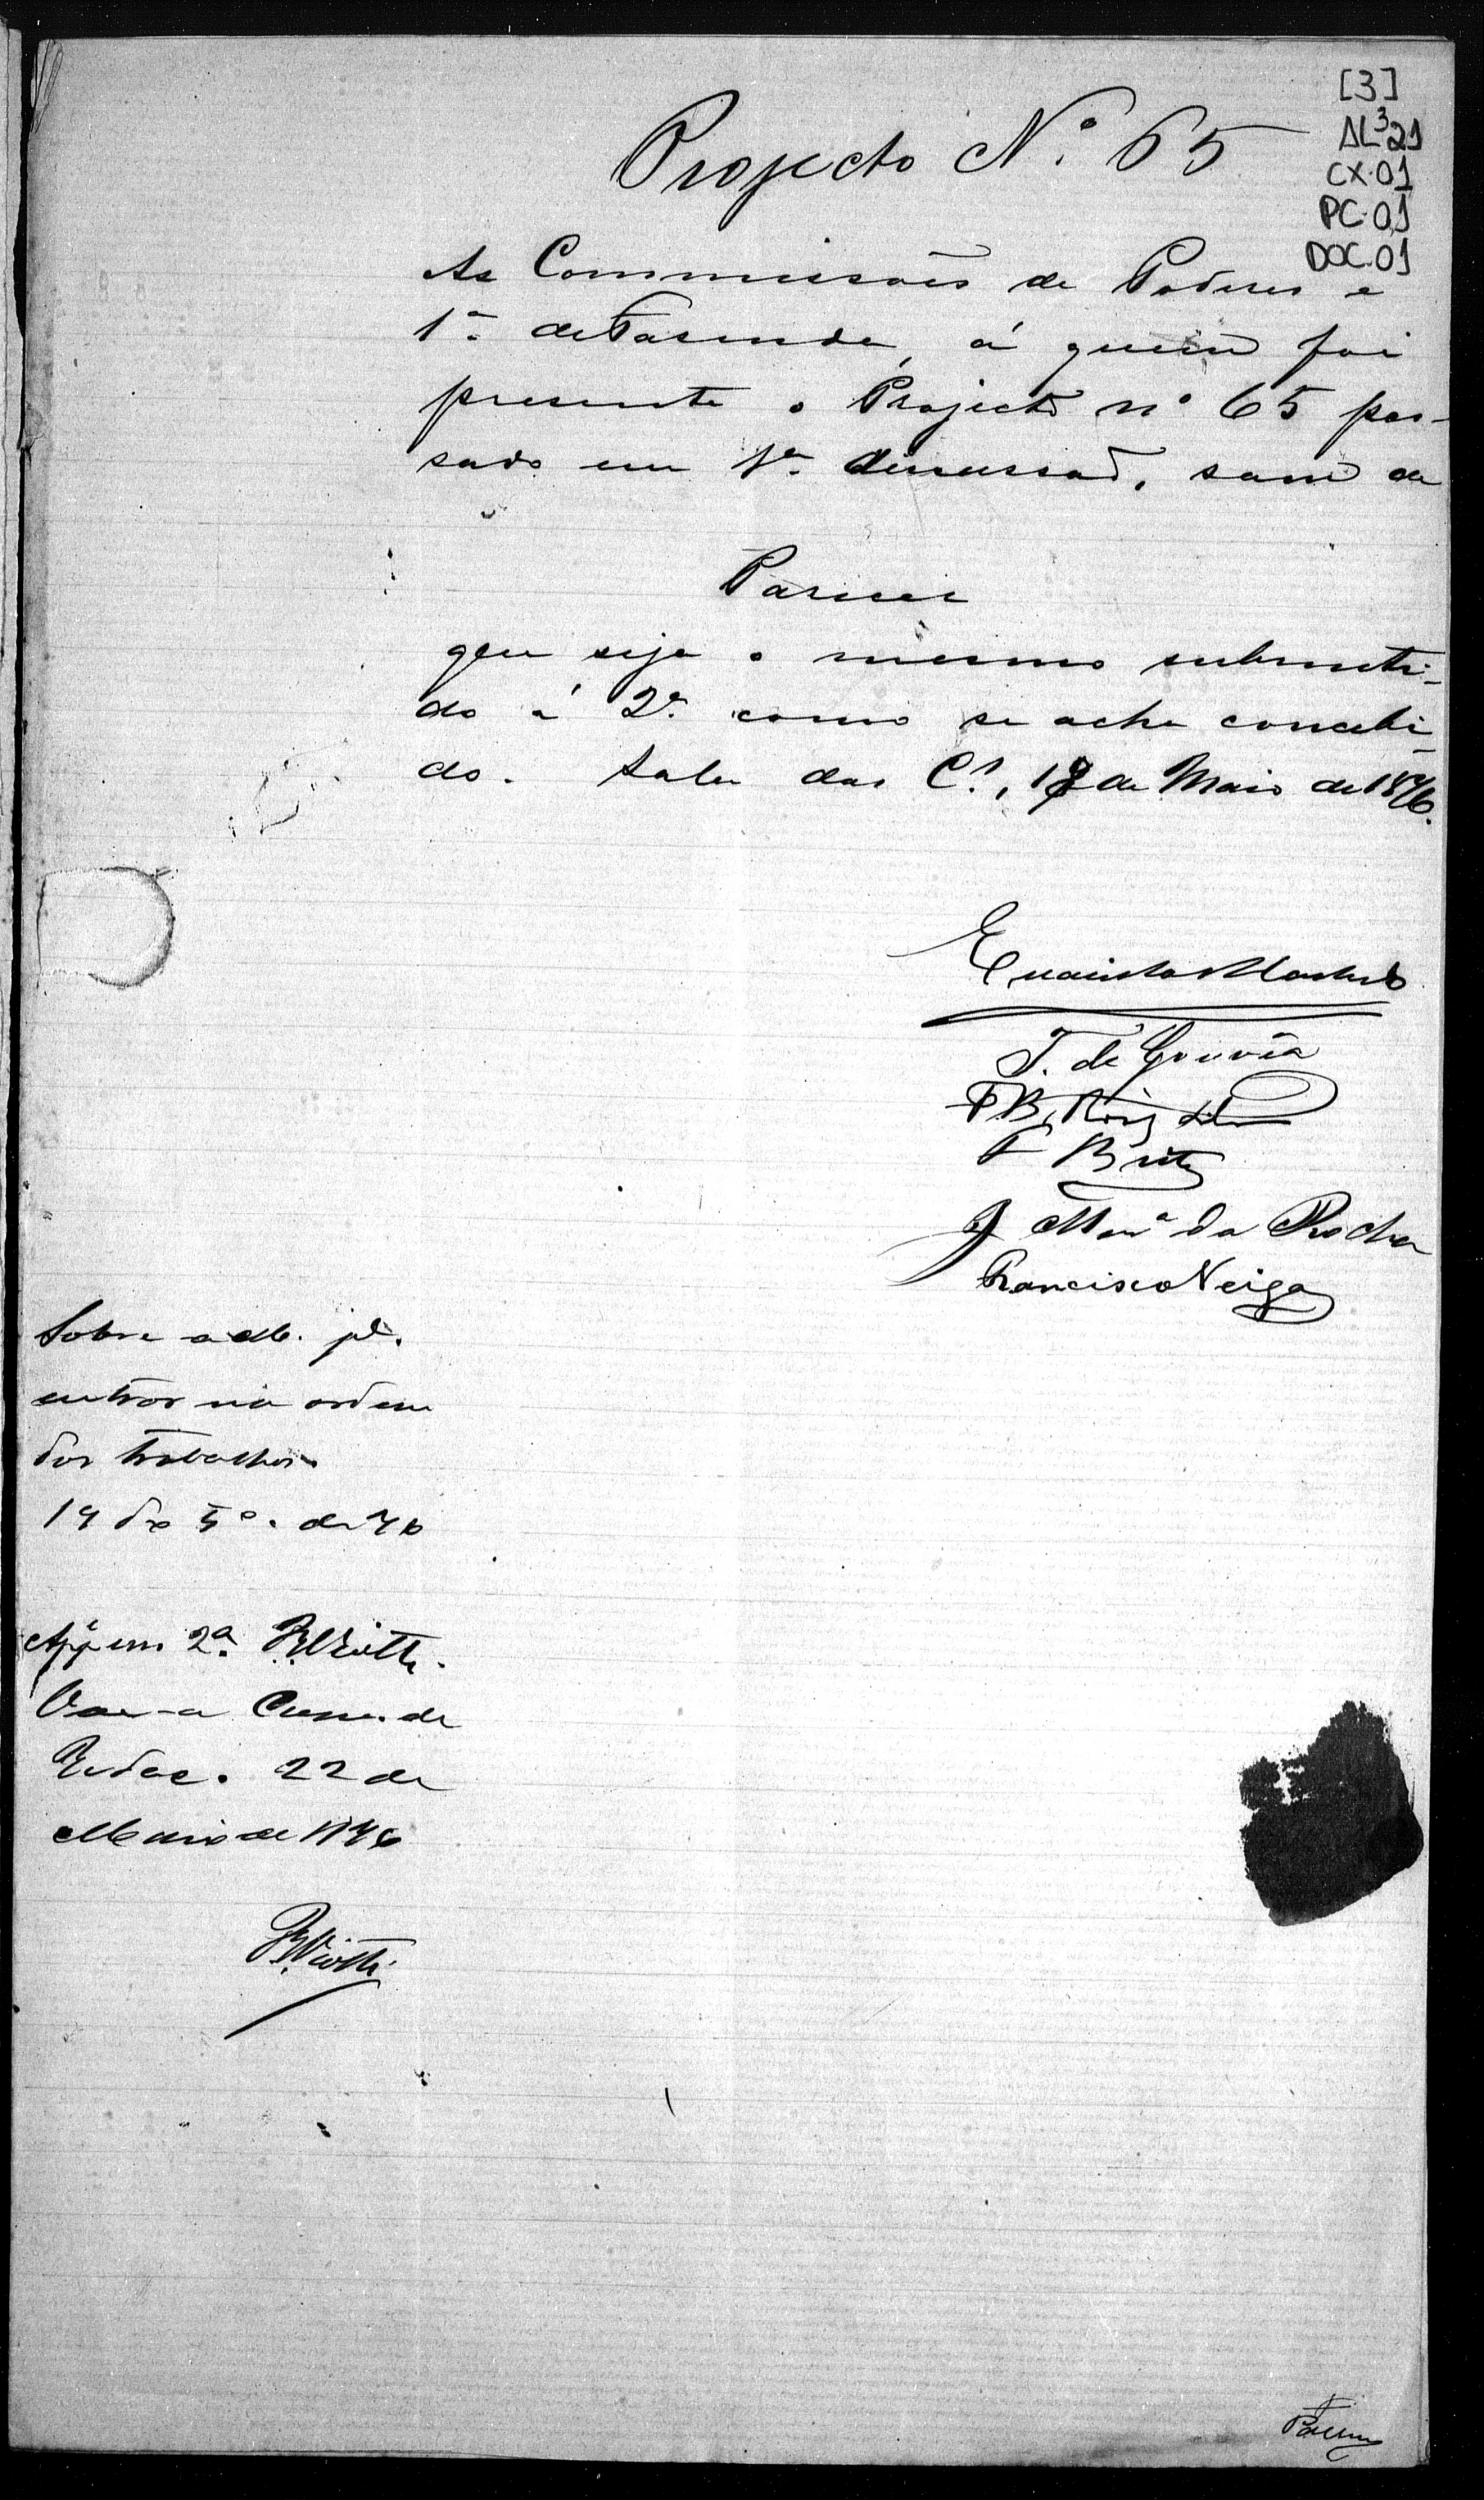 [3]
AL³21
CX.01
PC.01
DOC.01
Projecto N.º 65
As Commissões de Poderes e
1ª de Fasenda, á quem foi
presente o Projecto nº 65 pas-
sado em 1ª discussaõ, sam de
Parecer
que seja o mesmo submetti-
do á 2ª como se acha concebi-
do. Sala das C.s, 18 de Maio de 1876.
Evaristo Machado
J. de Gouvêa
F. B. Roiz
F Brito
J Mar.ª da Rocha
Francisco Veiga
Sobre a M. pª.
entrar na ordem
dos trabalhos
19 de 5º. de 76
App. em 2ª. B. Viotti.
Vae-a Comm. de
Redac. 22 de
Maio de 1876
B. Viotti